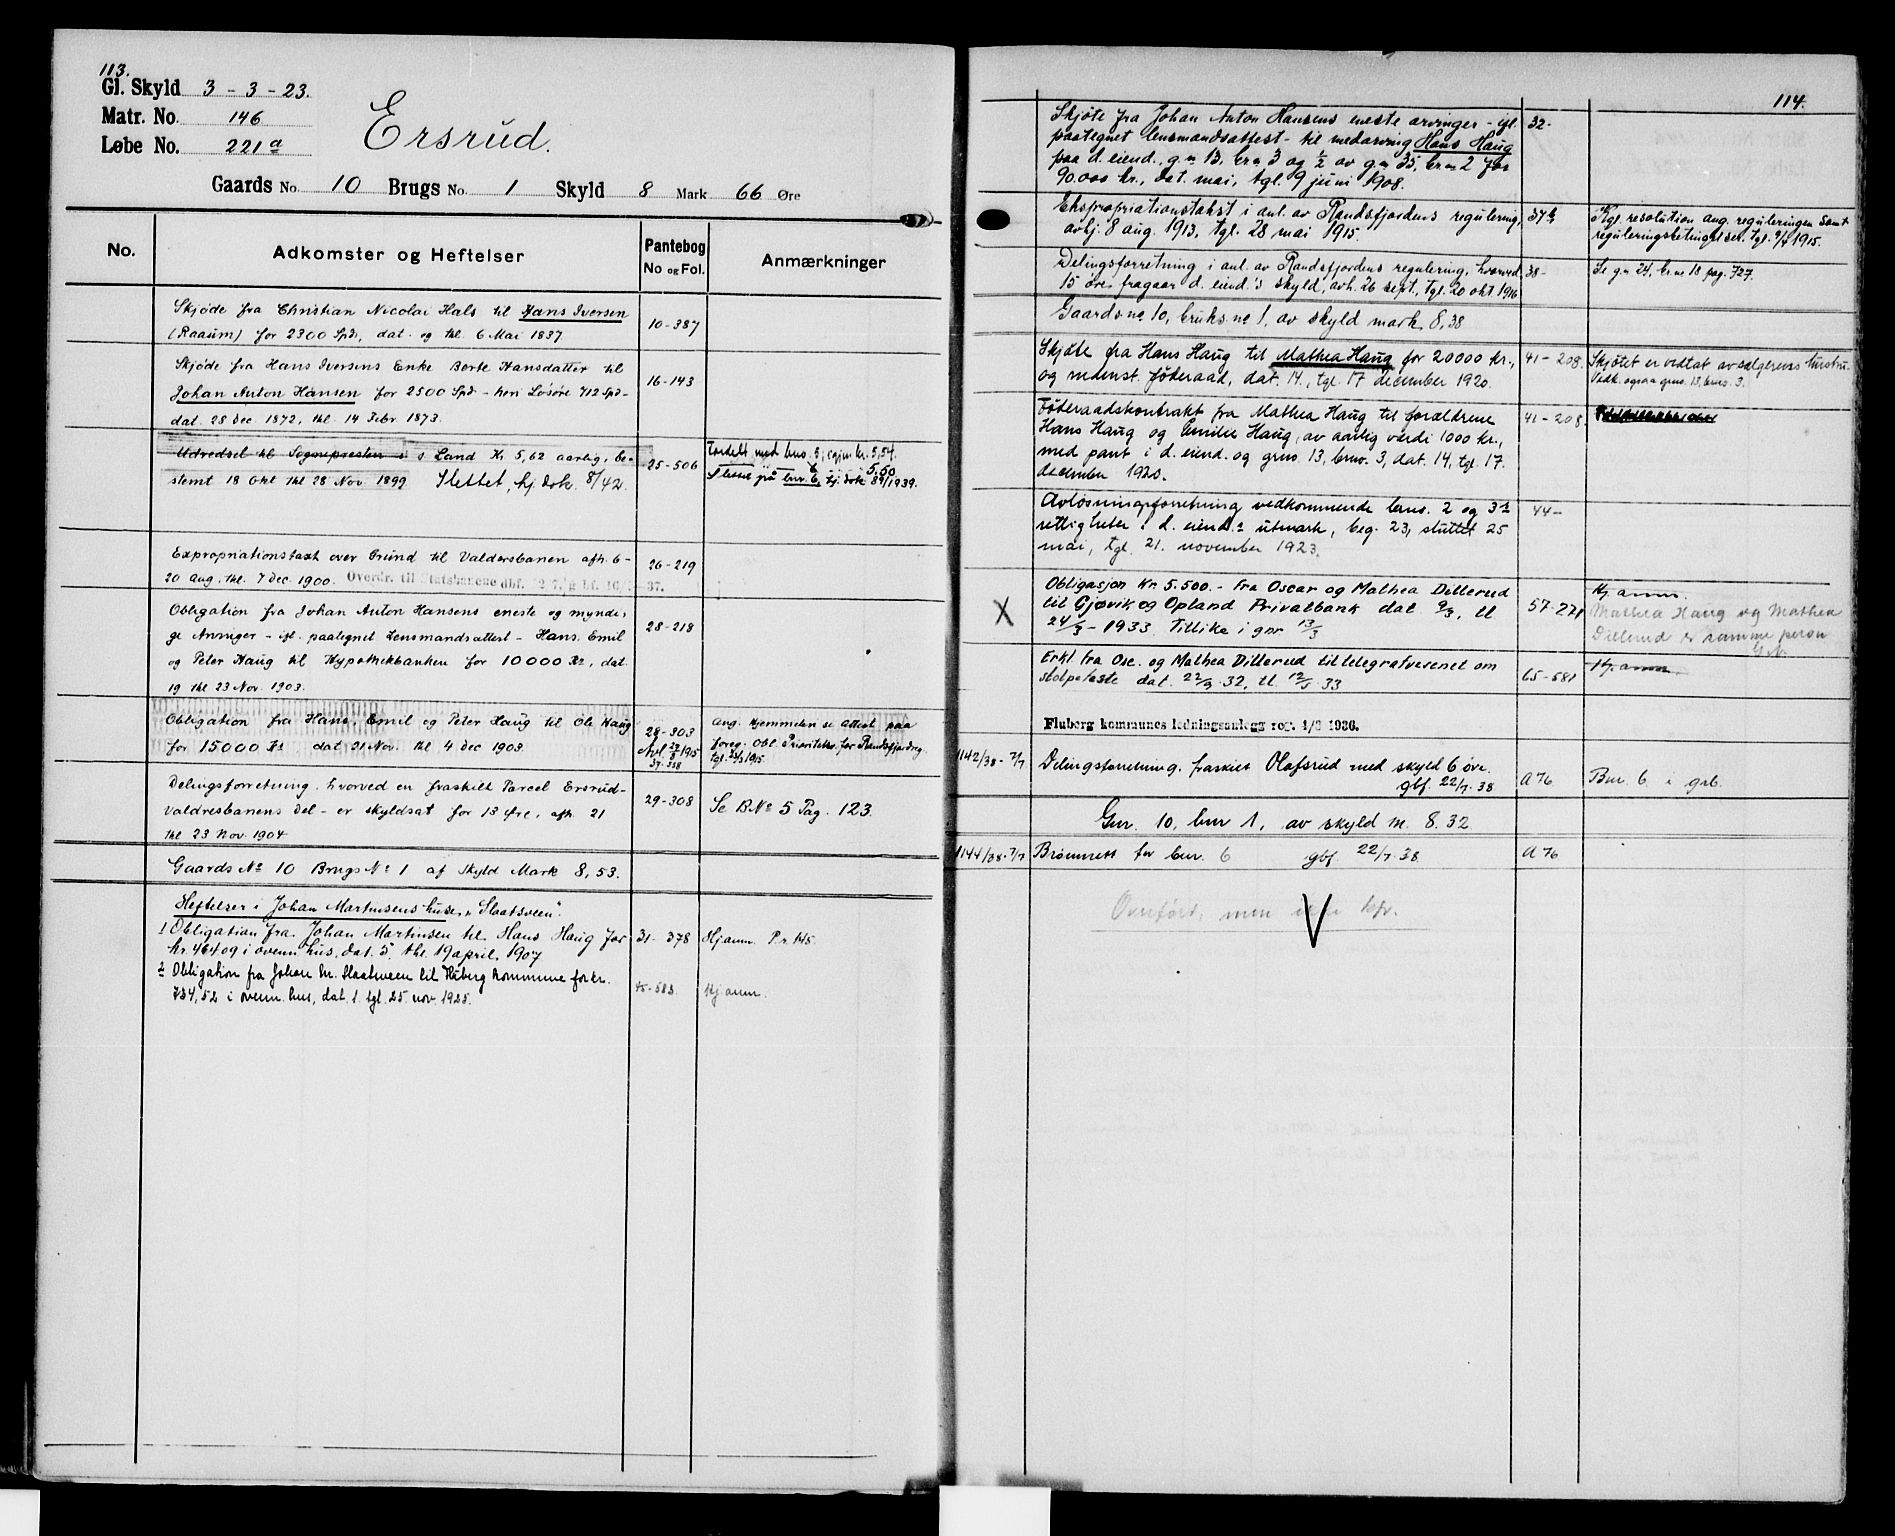 113.
Gl. Skyld 3 - 3 - 23.
Matr. No. 146
Løbe No. 221a
Ersrud.
Gaards No. 10 Brugs No. 1 Skyld 8 Mark 66 Øre
No.
Adkomster og Heftelser
Pantebog
No og Fol.
Anmærkninger
Skjøde fra Christian Nicolai Hals til Hans Iversen
(Raaum) for 2300 Spd., dat. og thl. 6 Mai 1837.
10-387
Skjøde fra Hans Iversens Enke Berte Hansdatter til
Johan Anton Hansen for 2500 Spd - hen Løsøre 712 Spd -
dat. 28 Dec. 1872, thl. 14 Febr. 1873.
16-143
Udredsel til Sognepresten i S. Land Kr. 5,62 aarlig, be-
stemt 18 Okt thl 28 Nov. 1899 Slettet, hj. dok. 8/42.
25-506
Fordelt med brus. 5,
Slettet på brn. 6, hj. dok 89/1939.
Expropriationstaxt over Grund til Valdersbanen afh. 6-
20 Aug., thl. 7 Dec. 1900. Overdr. til Statsbanene dbf.
26-219
Obligation fra Johan Anton Hansens eneste og myndi,
ge Arvinger - ifl. paategnet Lensmandsattest - Hans, Emil
og Peter Haug til Hypothekbanken for 10000 Kr, dat.
19 thl 23 Nov. 1903.
28-218
Obligation fra Hans, Emil og Peter Haug til Ole Haug
for 15000 Kr dat 21 Nov. thl 4 Dec 1903.
28-303
37-358
Ang. Hjemmelen se Attest paa
foreg. Obl. Prioritets. for Randsfjordreg.
Delingsforretning, hvorved en fraskilt Parcel Ersrud-
Valdresbanens Del - er skyldsat for 13 Øre, afh. 21
thl 23 Nov. 1904
29-308
Se B.No 5 Pag. 123.
Gaards No 10 Brugs No 1 af Skyld Mark 8,53.
Heftelser i Johan Martinsens hus „Slaatsveen".
1 Obligation fra Johan Martinsen til Hans Haug for
kr. 464 09 i ovenn. hus, dat. 5, thl. 19 april, 1907
31-378
Hj. anm. P.r. 145.
2 Obligation fra Johan M. Slaatsveen til Fluberg kommune for kr.
734,52 i ovenn. hus, dat. 1. tgl. 25. nov. 1925.
45-583.
Hj. anm.
114.
Skjøte fra Johan Anton Hansens eneste arvinger - ifl.
paategnet lensmandsattest - til medarving Hans Haug
paa d. eiend., g.n. 13, br.n. 3 og ½ av g.n. 35, br.n. 2 for
90.000 kr., dat. mai, tgl. 9 juni 1908.
32-
Ekspropriationstakst i anl. av Randsfjordens regulering,
avhj. 8 aug. 1913, tgl. 28 mai 1915.
37b
Kgl. resolution ang. reguleringen samt
reguleringsbetingelser. tgl. 9/7 1915.
Delingsforretning i anl. av Randsfjordens regulering, hvorved
15 øre fragaar d. eiend.'s skyld, avh. 26 sept., tgl. 20 okt 1916
38-
Se g.n 24, br.n 18 pag. 727.
Gaards ne 10, bruks ne 1, av skyld mark 8,38
Skjøte fra Hans Haug til Mathea Haug for 20000 kr.,
og uenst. føderaad, dat. 14., tgl. 17 december 1920.
41-208.
Skjøtet er vedtat av sælgerens hustru.
Vedk. ogsaa grns. 13, brns. 3.
Føderaadskontrakt fra Mathea Haug til forældrene
Hans Haug og Emilie Haug, av aarlig verdi 1000 kr.,
med pant i d. eiend. og grns 13, brnv. 3, dat. 14, tgl. 17.
december 1920.
41-208.
Avløsningsforretning vedkommende brns. 2 og 3's
rettigheter i d. eiend.s utmark, beg. 23, sluttet 25
mai, tgl. 21. november 1923.
44-
X
Obligasjon kr. 5.500.- fra Oscar og Mathea Dillerud
til Gjøvik og Opland Privatbank dat 9/3, tl
24/3 - 1933. Tillike i gnr 13/3
57-271
Hj. anm.
Mathea Haug og Mathea
Dillerud er samme person
Erkl fra Osc. og Mathea Dillerud til telegrafvesenet om
stolpefeste dat. 22/9 32, tl. 12/5 33
65-581
Hj. anm.
Fluberg kommunes ledningsanlegg reg. 1/8 1936.
1142/38 - 7/7
Delingsforretning, fraskilt Olafsrud med skyld 6 øre.
gbf. 22/7. 38
A 76
Bnr. 6 i gsb.
Gnr. 10, bnr 1, av skyld m. 8.32
1144/38 - 7/7
Brønnrett for bnr. 6 gbf 22/7. 38
A 76
Overført, men ikke kfr.
V